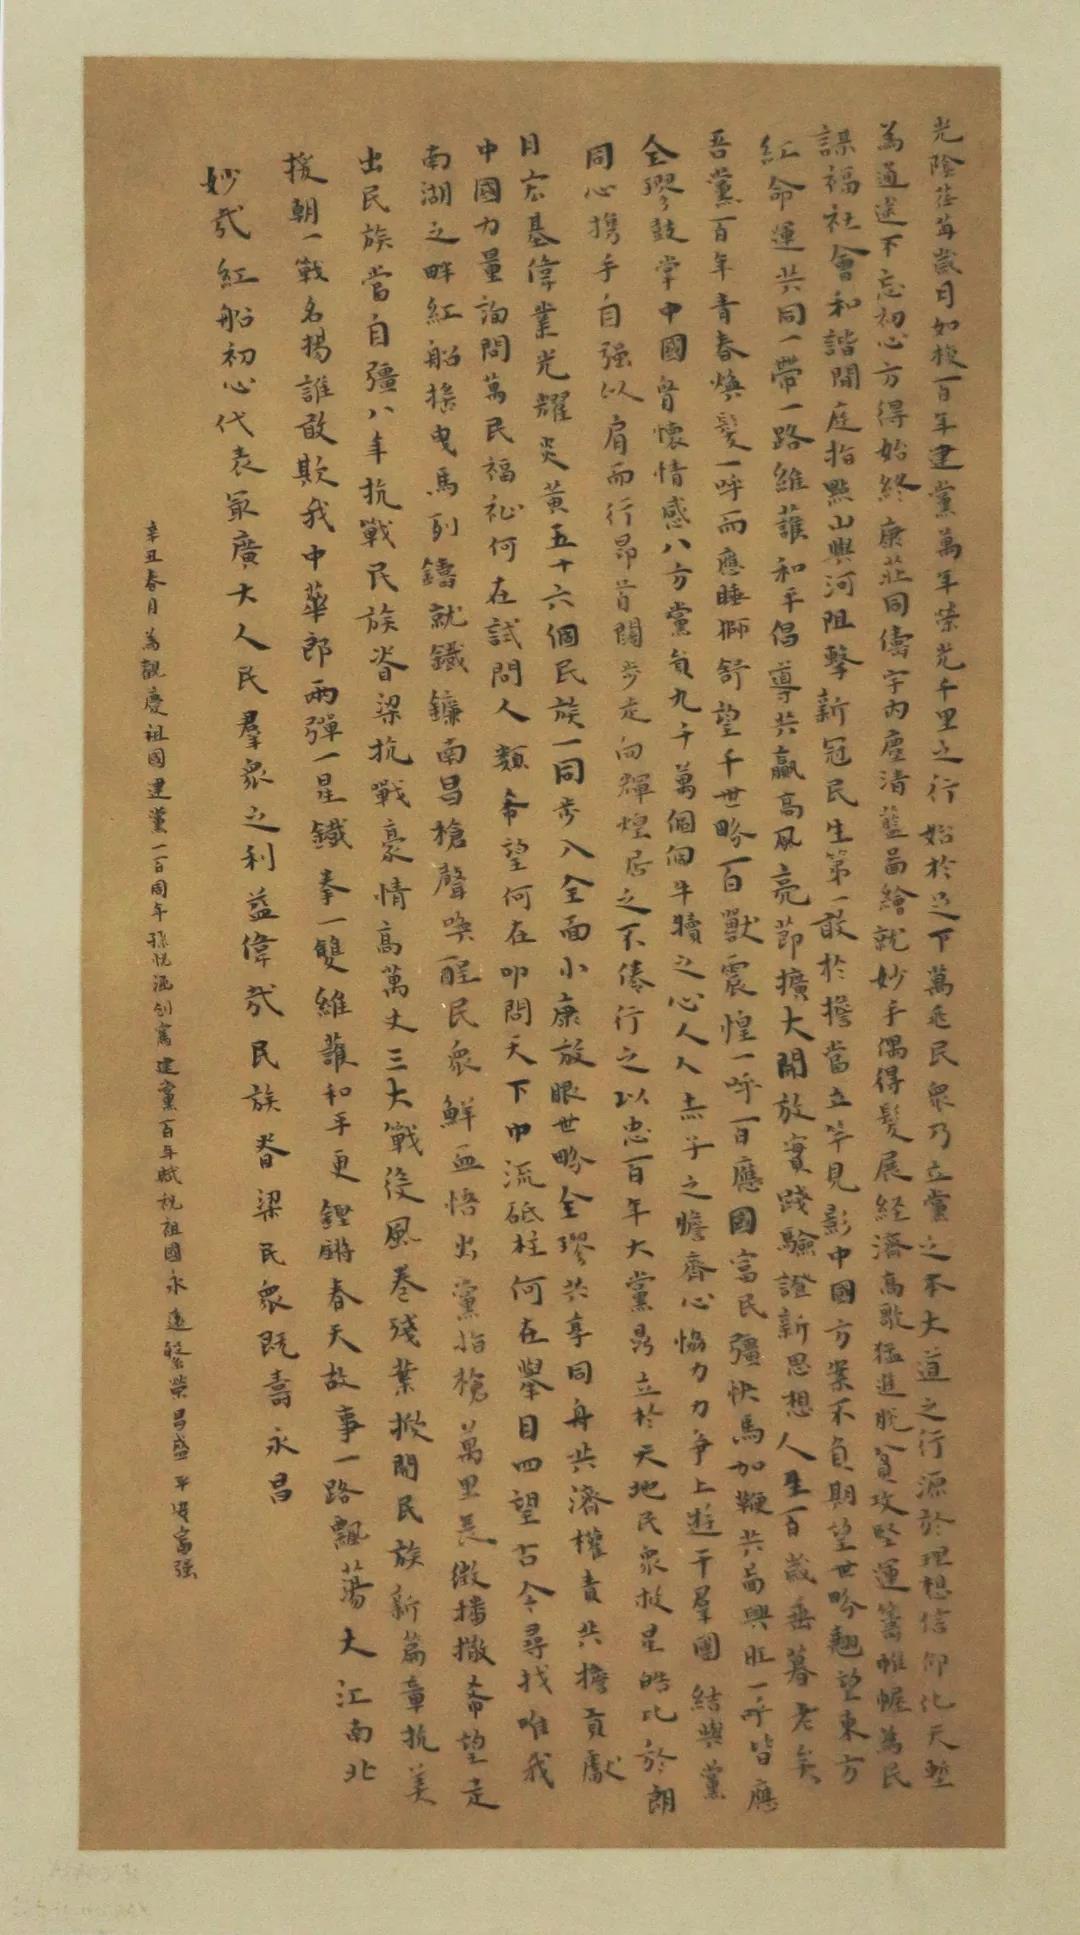 光陰荏苒歲月如梭百年建黨萬年榮光千里之行始於足下萬兆民眾乃立黨之本大道之行源於理想信仰化天塹
為通途不忘初心方得始終康莊同儔宇內塵清藍圖繪就妙手偶得髮展經濟高歌猛進脫貧攻堅運籌帷幄為民
謀福社會和諧閒庭指點山與河阻擊新冠民生第一敢於擔當立竿見影中國方案不負期望世界翹望東方
紅命運共同一帶一路維護和平倡導共贏高風亮節擴大開放實踐驗證新思想人生百歲垂暮老矣
吾黨百年青春煥髮一呼而應睡獅舒望千世界百獸震惶一呼百應國富民彊快馬加鞭共圖興旺一呼皆應
全球鼓掌中國胸懷情感八方黨員九千萬個個牛犢之心人人赤子之膽齊心協力力爭上遊干羣團結與黨
同心攜手自強以肩而行昂首闊步走向輝煌居之不倦行之以忠百年大黨屹立於天地民眾救星皓比於朗
日宏基偉業光耀炎黃五十六個民族一同步入全面小康放眼世界全球共享同舟共濟權責共擔貢獻
中國力量詢問萬民福祉何在試問人類希望何在叩問天下中流砥柱何在舉目四望古今尋找唯我
南湖之畔紅船搖曳馬列鑄就鐵鐮南昌槍聲喚醒民眾鮮血悟出黨指槍萬里長徵播撒希望走
出民族當自彊八年抗戰民族脊梁抗戰豪情高萬丈三大戰役風卷殘葉掀開民族新篇章抗美
援朝一戰名揚誰敢欺我中華郎兩彈一星鐵拳一雙維護和平更鏗鏘春天故事一路飄蕩大江南北
妙哉紅船初心代表最廣大人民羣眾之利益偉哉民族脊梁民眾既壽永昌
辛丑春月為歡慶祖國建黨一百周年孫悅涵創寫建黨百年賦祝祖國永遠繁榮昌盛平安富強